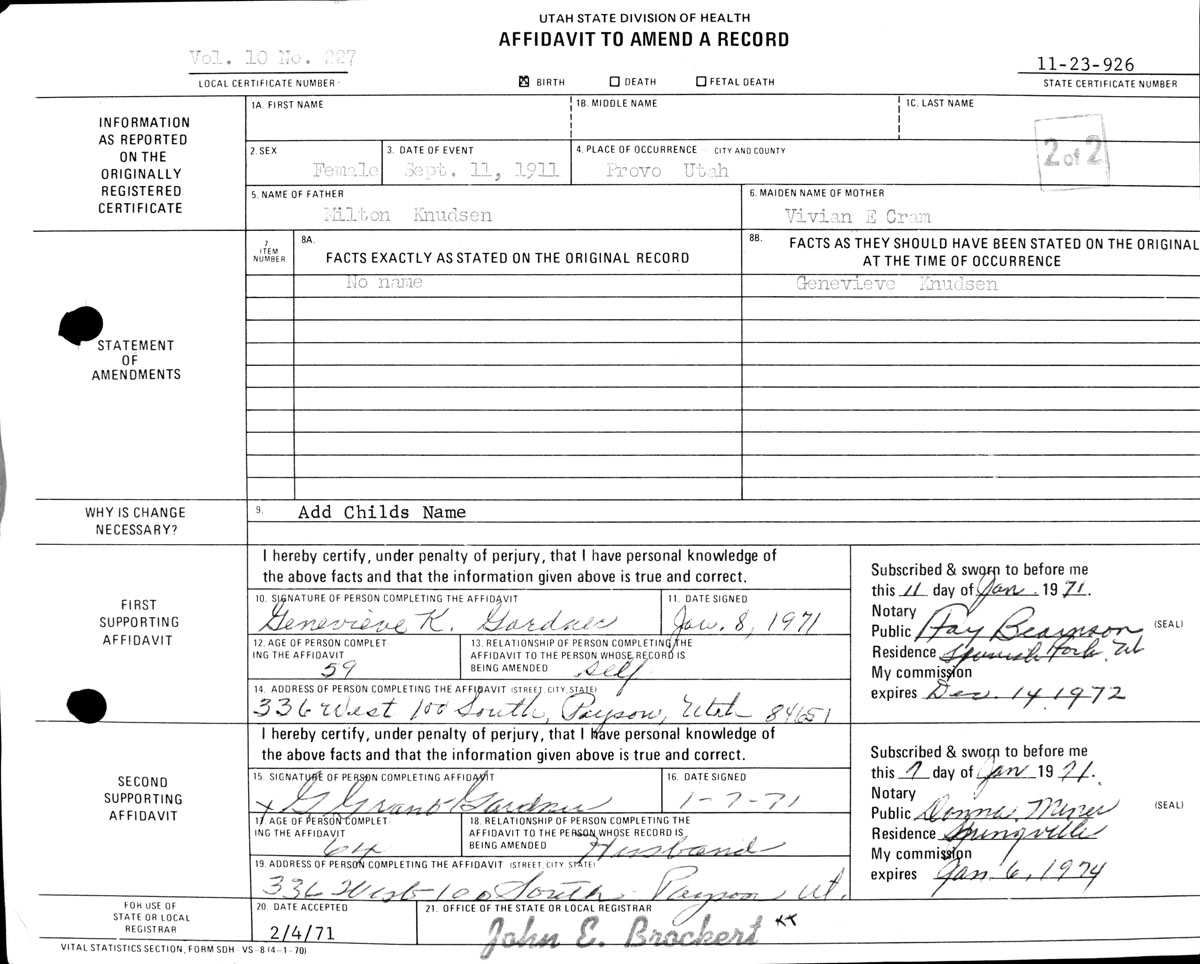 UTAH STATE DIVISION OF HEALTH
AFFIDAVIT TO AMEND A RECORD
Vol. 10 No. 227
LOCAL CERTIFICATE NUMBER
☒ BIRTH ☐ DEATH ☐ FETAL DEATH
11-23-926
STATE CERTIFICATE NUMBER
INFORMATION
AS REPORTED
ON THE
ORIGINALLY
REGISTERED
CERTIFICATE
1A. FIRST NAME
1B. MIDDLE NAME
1C. LAST NAME
2 of 2
2. SEX
Female
3. DATE OF EVENT
Sept. 11, 1911
4. PLACE OF OCCURRENCE - CITY AND COUNTY
Provo Utah
5. NAME OF FATHER
Milton Knudsen
6. MAIDEN NAME OF MOTHER
Vivian E Cram
STATEMENT
OF
AMENDMENTS
7. ITEM NUMBER
8A.
FACTS EXACTLY AS STATED ON THE ORIGINAL RECORD
8B.
FACTS AS THEY SHOULD HAVE BEEN STATED ON THE ORIGINAL
AT THE TIME OF OCCURRENCE
No name
Genevieve Knudsen
WHY IS CHANGE
NECESSARY?
9. Add Childs Name
FIRST
SUPPORTING
AFFIDAVIT
I hereby certify, under penalty of perjury, that I have personal knowledge of
the above facts and that the information given above is true and correct.
10. SIGNATURE OF PERSON COMPLETING THE AFFIDAVIT
Genevieve K. Gardner
11. DATE SIGNED
Jan. 8, 1971
12. AGE OF PERSON COMPLET
ING THE AFFIDAVIT
59
13. RELATIONSHIP OF PERSON COMPLETING THE
AFFIDAVIT TO THE PERSON WHOSE RECORD IS
BEING AMENDED self
14. ADDRESS OF PERSON COMPLETING THE AFFIDAVIT (STREET, CITY, STATE)
336 West 100 South, Payson, Utah 84651
Subscribed & sworn to before me
this 11 day of Jan. 1971.
Notary
Public Fay Bearnson (SEAL)
Residence Spanish Fork Ut
My commission
expires Dec. 14, 1972
SECOND
SUPPORTING
AFFIDAVIT
I hereby certify, under penalty of perjury, that I have personal knowledge of
the above facts and that the information given above is true and correct.
15. SIGNATURE OF PERSON COMPLETING AFFIDAVIT
x G Grant Gardner
16. DATE SIGNED
1-7-71
17. AGE OF PERSON COMPLET
ING THE AFFIDAVIT
64
18. RELATIONSHIP OF PERSON COMPLETING THE
AFFIDAVIT TO THE PERSON WHOSE RECORD IS
BEING AMENDED Husband
19. ADDRESS OF PERSON COMPLETING THE AFFIDAVIT (STREET, CITY, STATE)
336 West 100 South - Payson Ut.
Subscribed & sworn to before me
this 7 day of Jan 1971.
Notary
Public Donna Miner (SEAL)
Residence Springville
My commission
expires Jan. 6, 1974
FOR USE OF
STATE OR LOCAL
REGISTRAR
20. DATE ACCEPTED
2/4/71
21. OFFICE OF THE STATE OR LOCAL REGISTRAR
John E. Brockert
VITAL STATISTICS SECTION, FORM SDH-VS-8 (4-1-70)